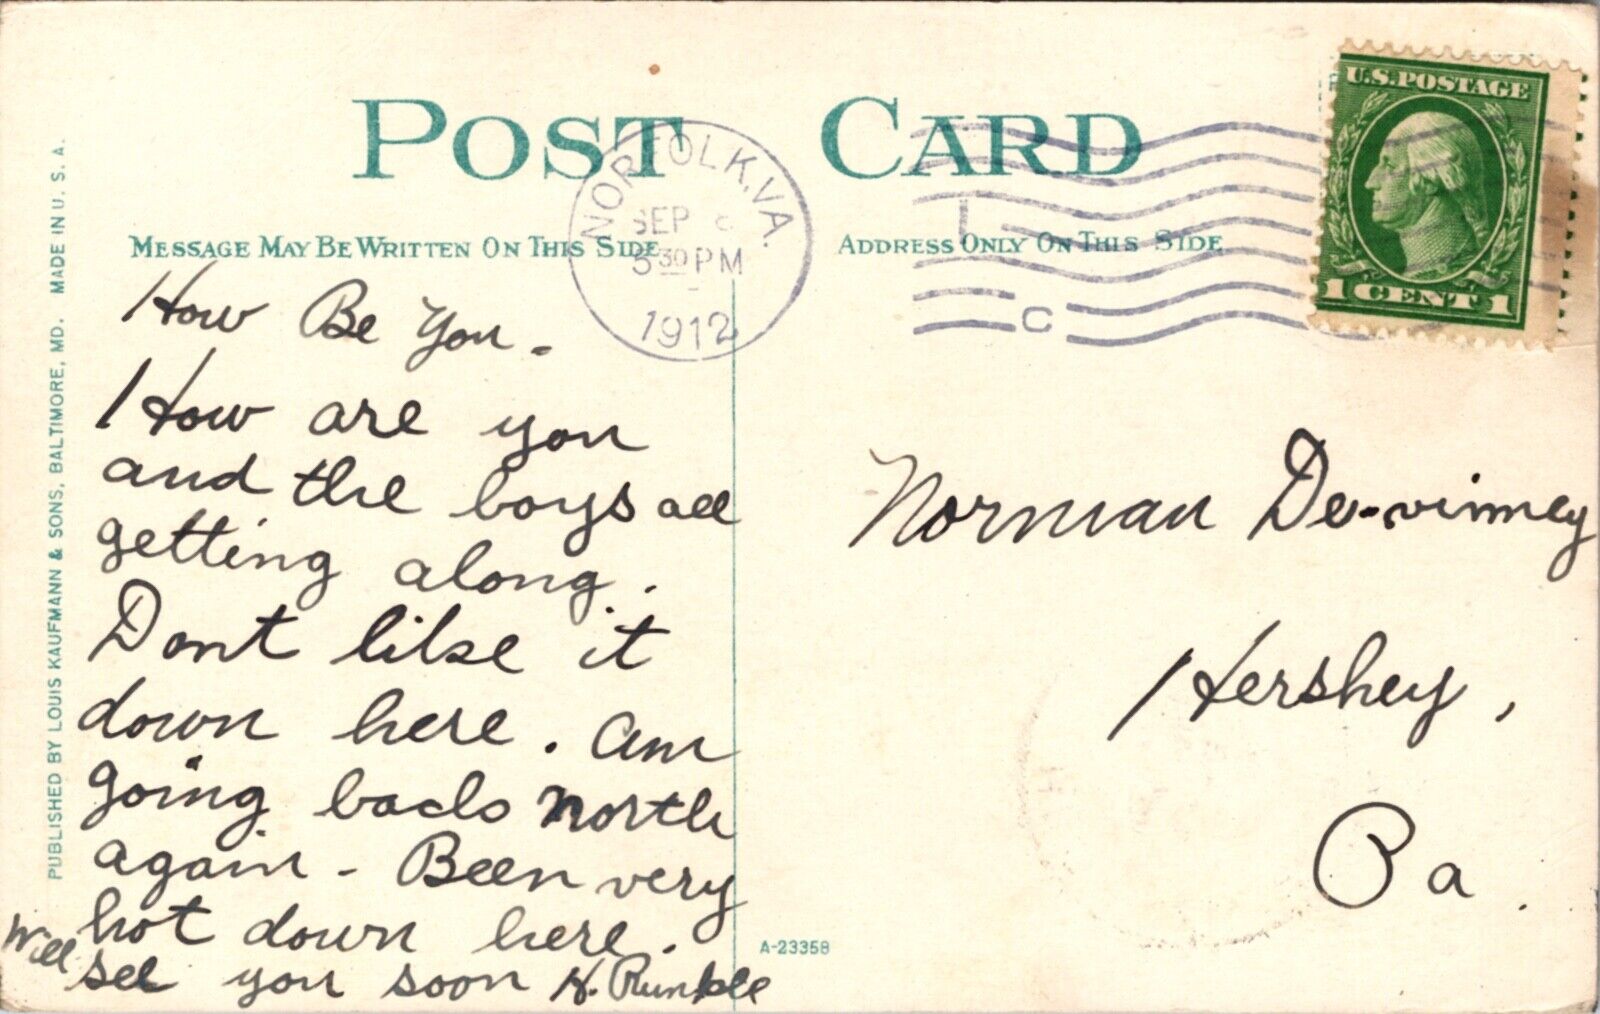 POST CARD
NORFOLK, VA.
SEP
30 PM
1912
C
U.S. POSTAGE
1 CENT 1
MESSAGE MAY BE WRITTEN ON THIS SIDE
ADDRESS ONLY ON THIS SIDE
PUBLISHED BY LOUIS KAUFMANN & SONS, BALTIMORE, MD. MADE IN U. S. A.
How Be You.
How are you
and the boys all
getting along.
Dont like it
down here. am
going back north
again - Been very
hot down here.
Will see you soon H. Runkle
Norman De-vinney
Hershey,
Pa.
A-23358